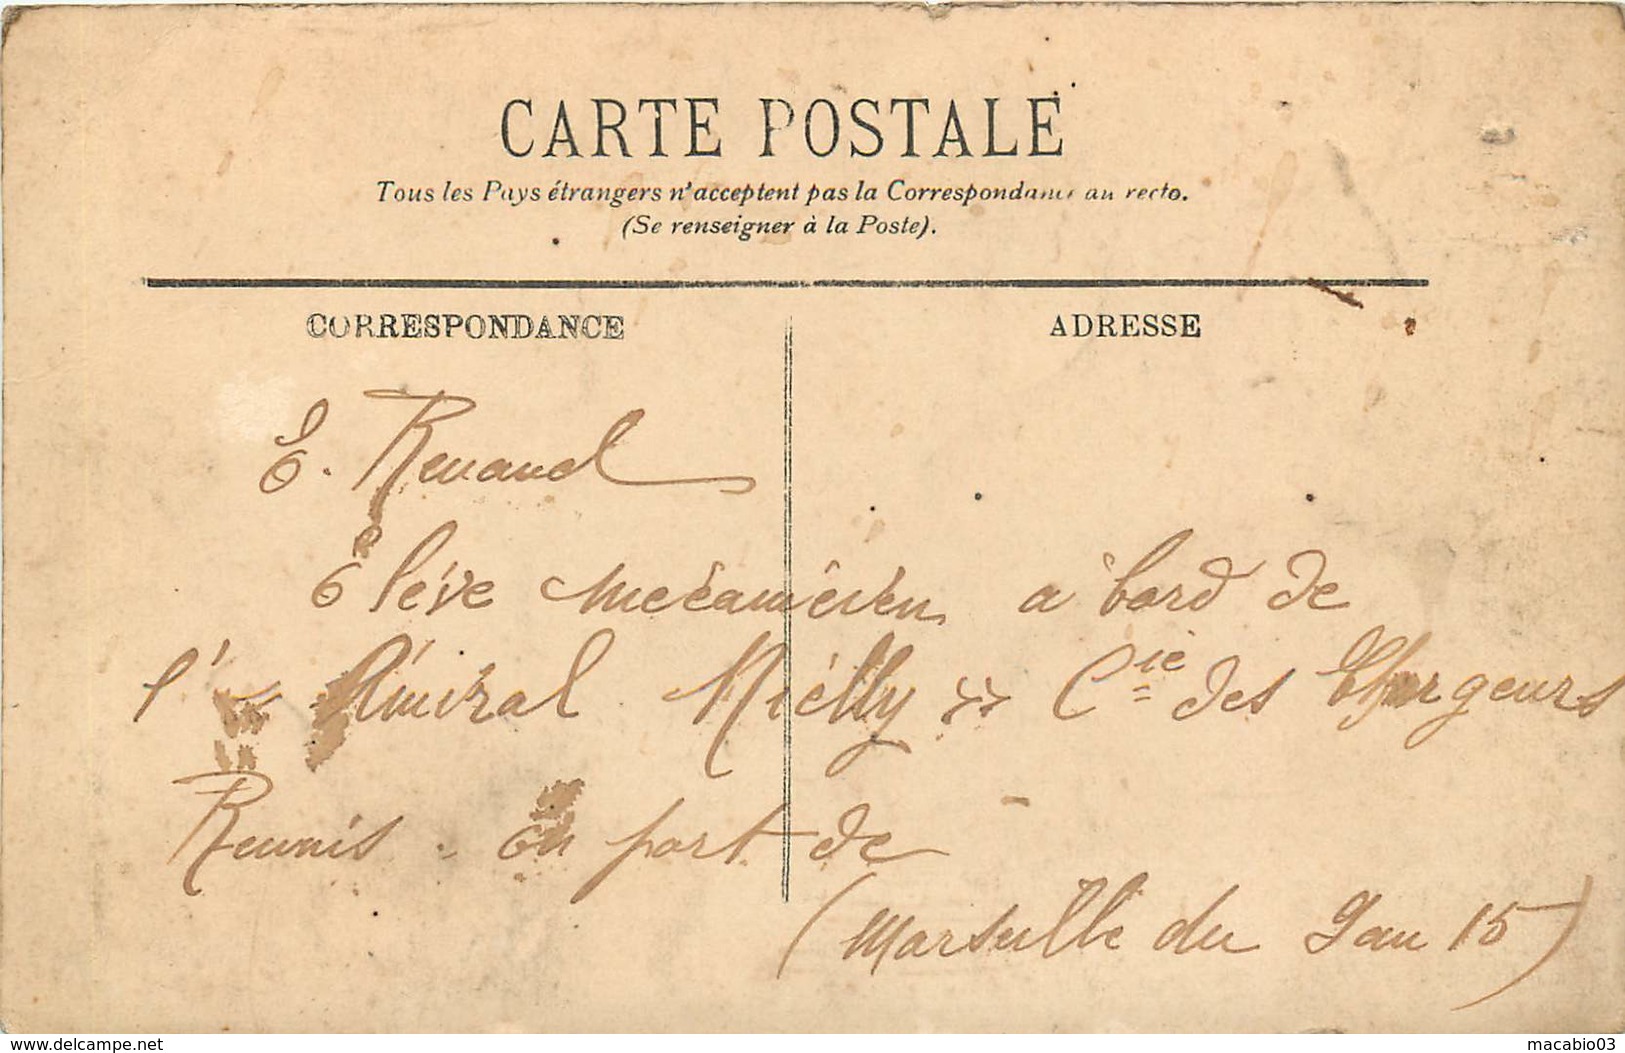 CARTE POSTALE
Tous les Pays étrangers n'acceptent pas la Correspondance au recto.
(Se renseigner à la Poste).
CORRESPONDANCE
ADRESSE
E. Renaud
Elève mécanicien à bord de
l' « Amiral Nielly » Cie des Chargeurs
Reunis - en port de
(Marseille du Jan 15)
www.delcampe.net
macabio03